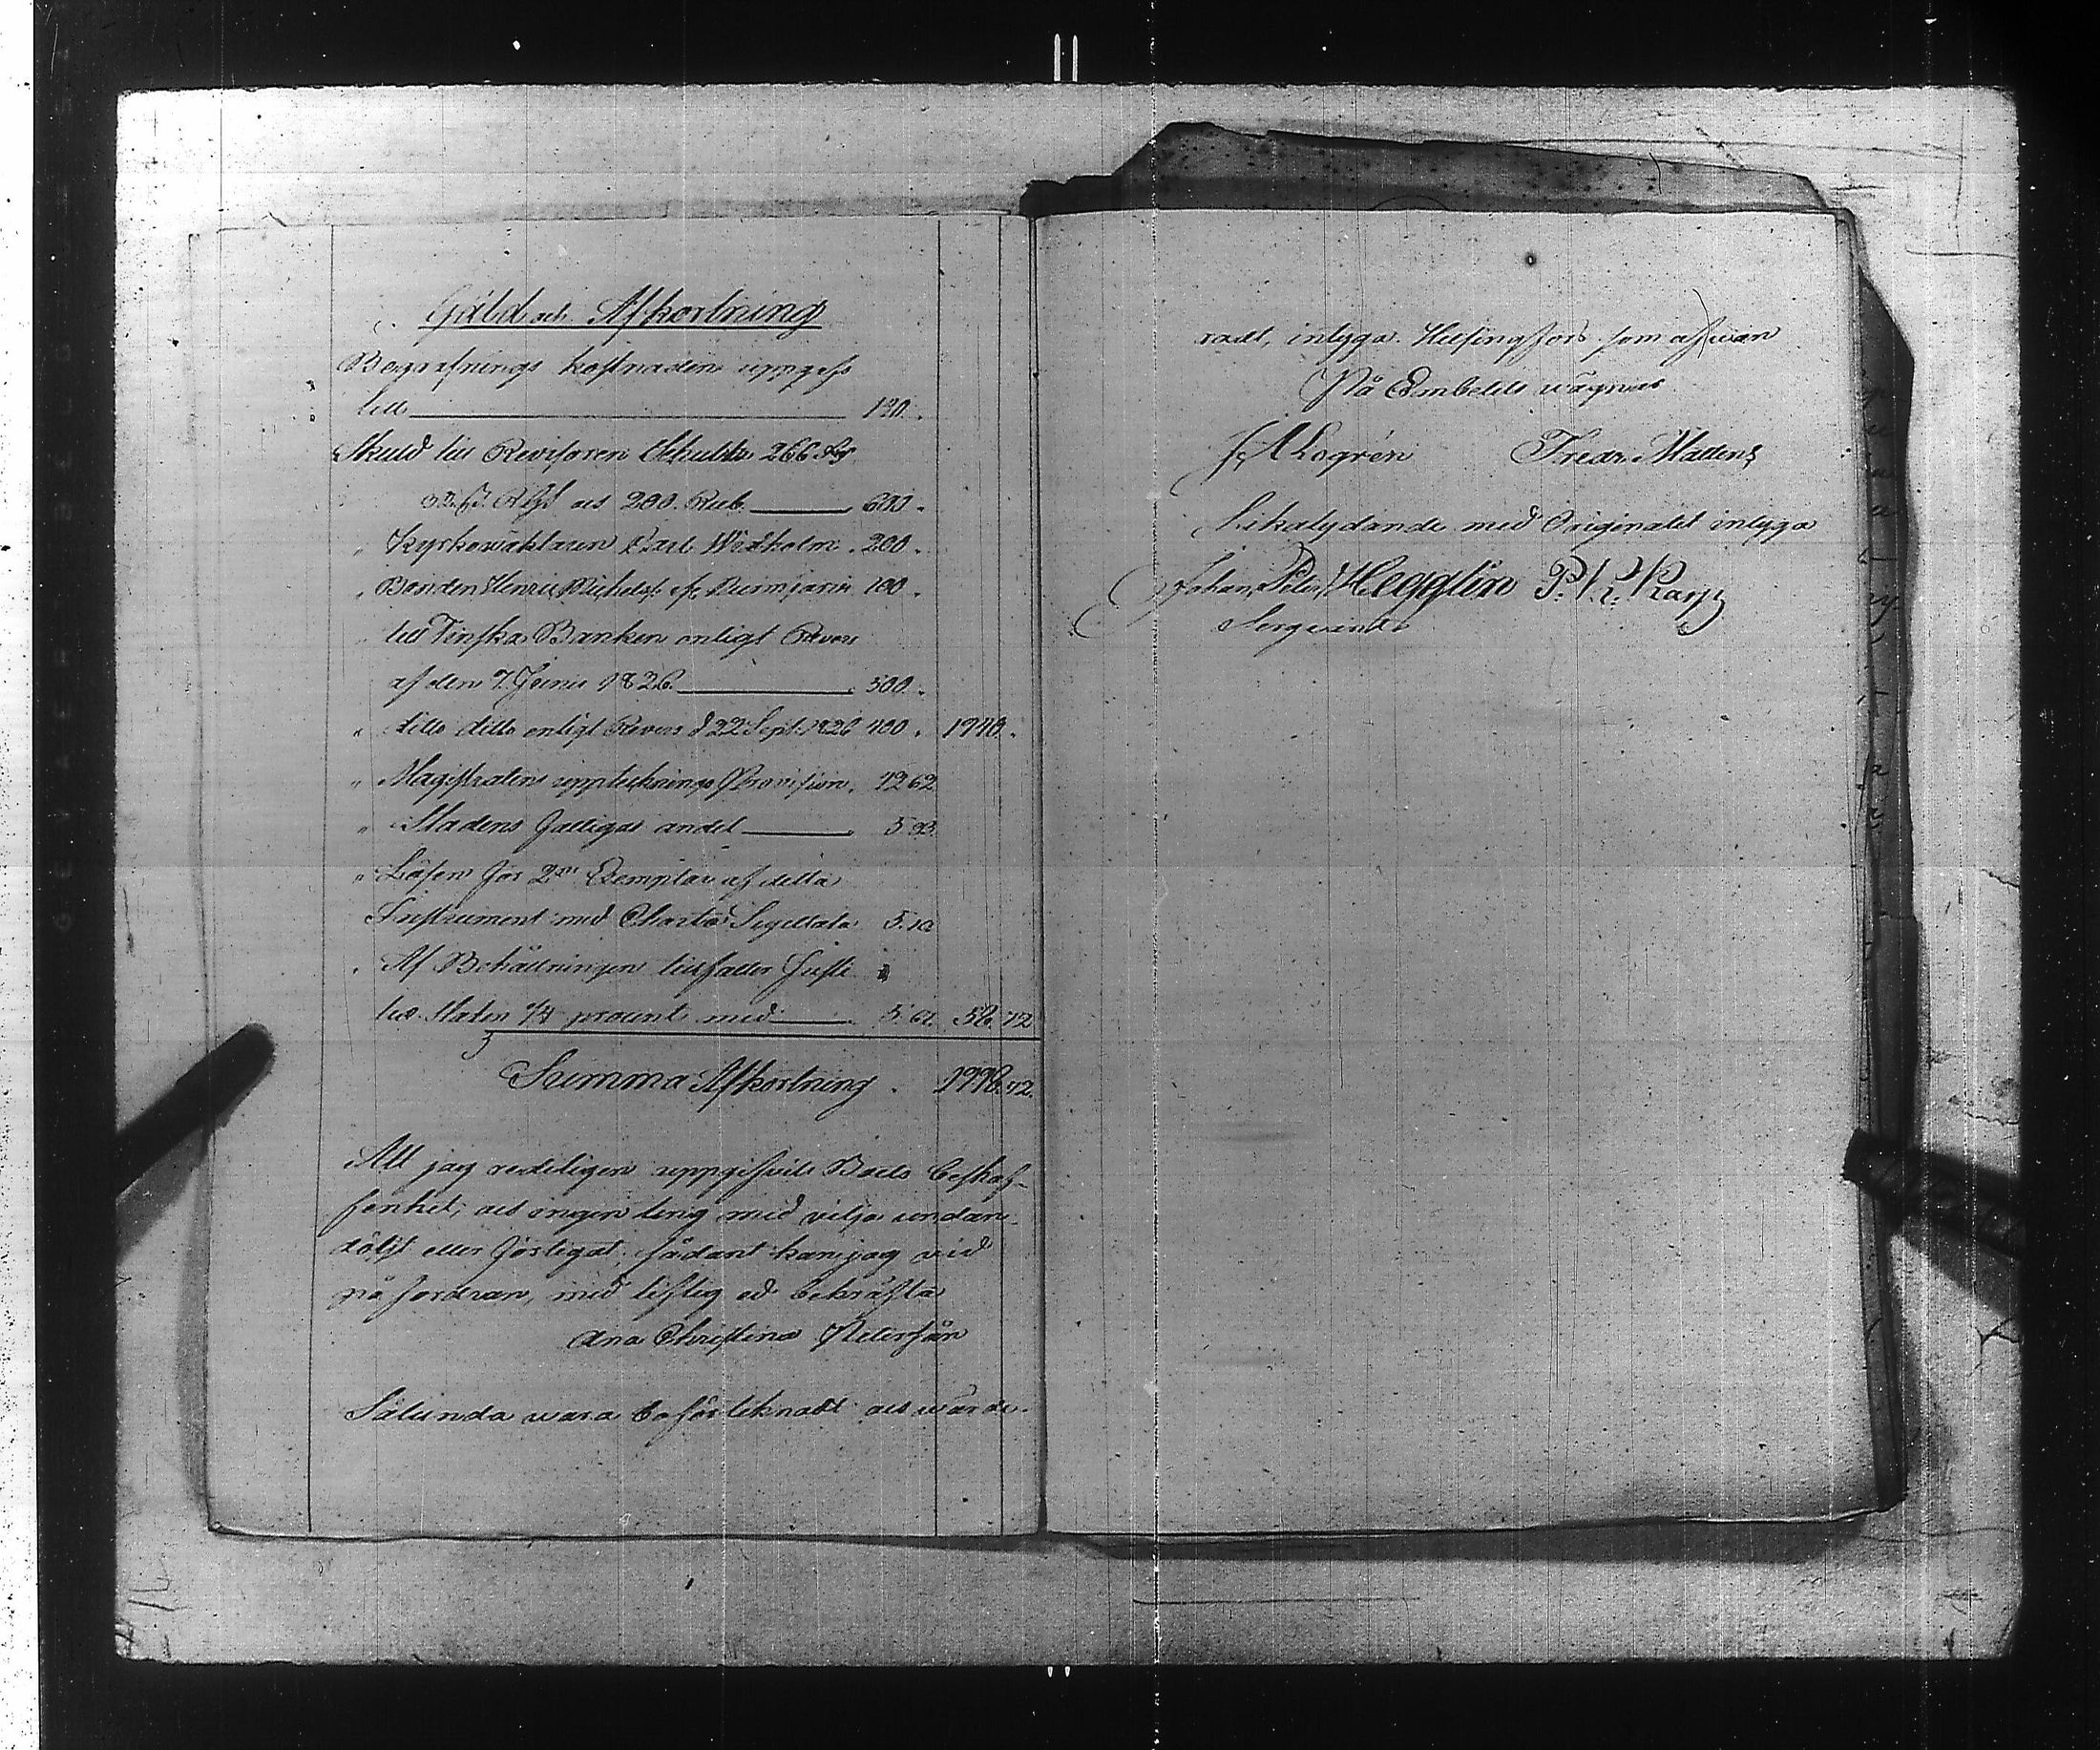 Gäld och Afkortning
Begrafnings kostnaden uppgifs
till 140.
Skuld till Revisoren Schultz 266 Rg
och 200. Rub. 600.
" Kyrkowäktaren Carl Widholm 200.
" Bonden Henric Michelss. 100.
" till Finska Banken enligt Revers
af den 7. Junii 1826. 500.
" ditto ditto enligt Revers d 22 Sept: 1826 400. 1940.
" Magistratens uppteknings Provision. 42 62
" Stadens fattigas andel 5 93
" Lösen för 2ne Exemplar af detta
Instrument med Charta Sigillata 5. 10
" Af Behållningen tillfaller Justi
tiæ Staten 1/4 procent med 5. 61. 58. 72
Summa Afkortning. 1998. 72.
Att jag redeligen uppgifvit Boets beskaf-
fenhet, och ingen ting med vilja undan-
dölgt eller förtegat, sådant kan jag vid
påfordran, med liflig ed bekräfta
Ana Christina Petersson
Sålunda vara boförteknadt och wärde-
radt, intyga. Helsingfors som ofwan
På Embetets wägnar
Fredr. Mattens
Likalydande med Originalet intyga
Johan Peter Hegglin P. K. Karp